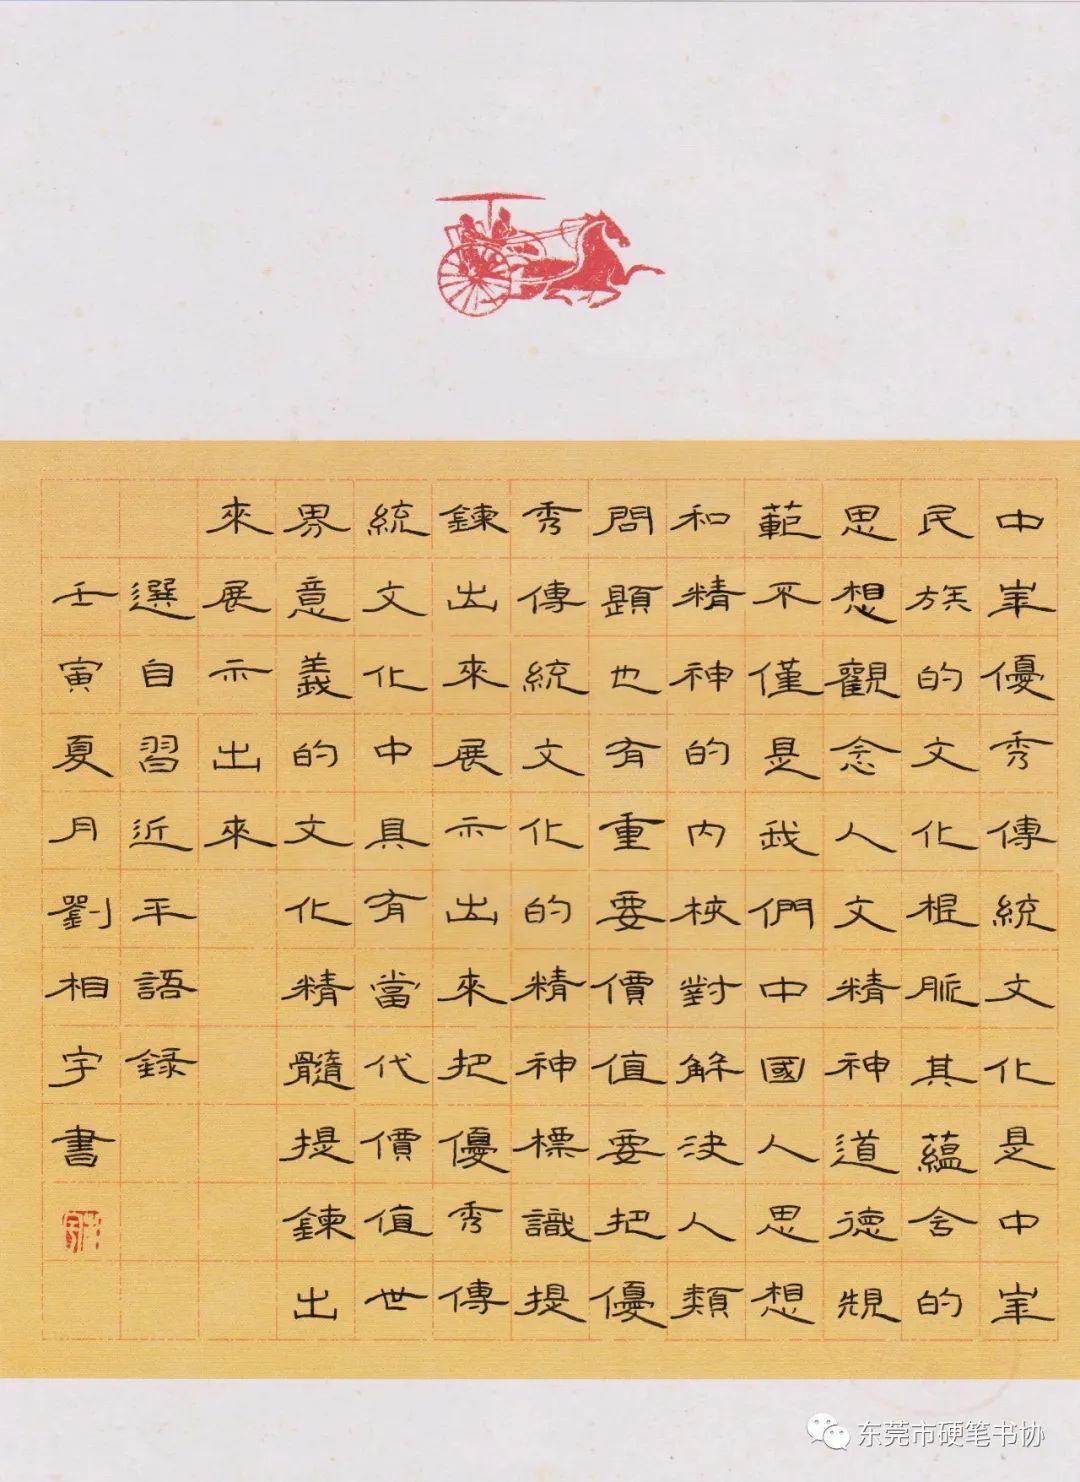 中華優秀傳統文化是中華
民族的文化根脈其蘊含的
思想觀念人文精神道德規
範不僅是我們中國人思想
和精神的内核對解決人類
問題也有重要價值要把優
秀傳統文化的精神標識提
鍊出來展示出來把優秀傳
統文化中具有當代價值世
界意義的文化精髓提鍊出
來展示出來
選自習近平語録
壬寅夏月劉相宇書
东莞市硬笔书协